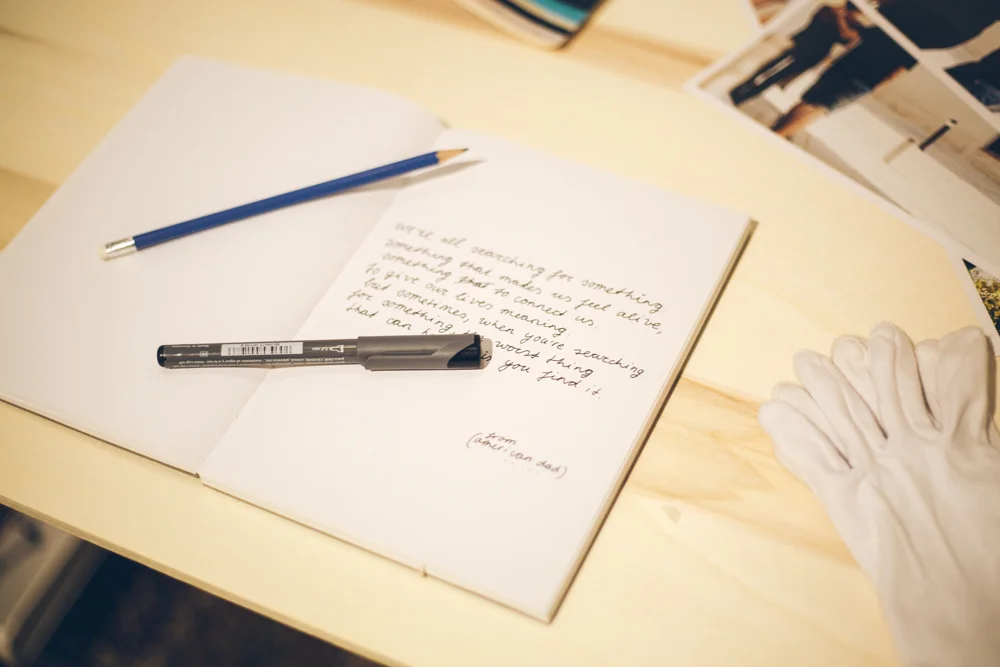 we're all searching for something
something that makes us feel alive,
something that to connect us.
to give our lives meaning.
but sometimes, when you're searching
for something worst thing
that can is you find it.
(from
american dad)